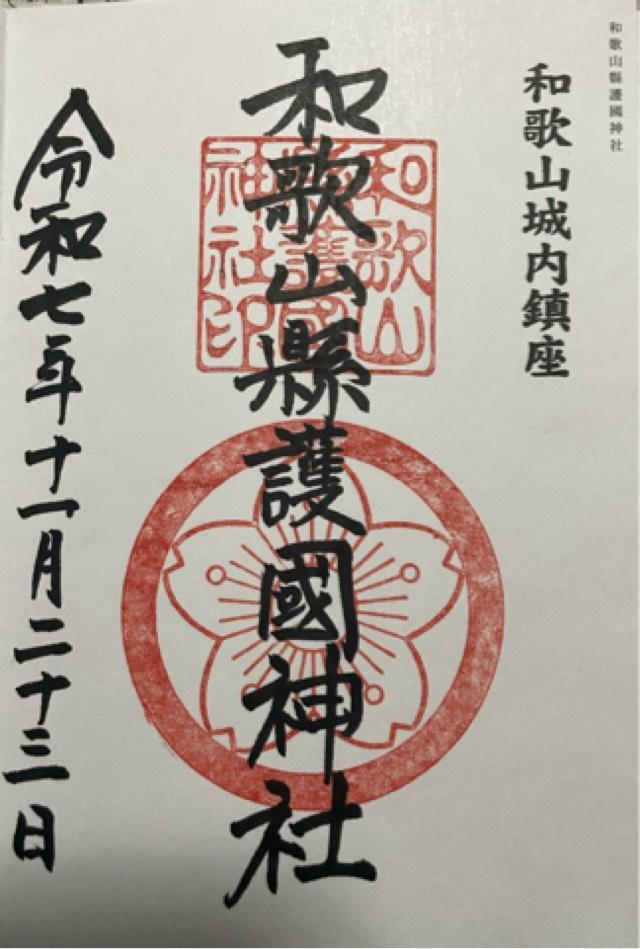 和歌山縣護國神社
和歌山城内鎮座
和歌山縣護國神社
和歌山
縣護國
神社印
令和七年十一月二十三日